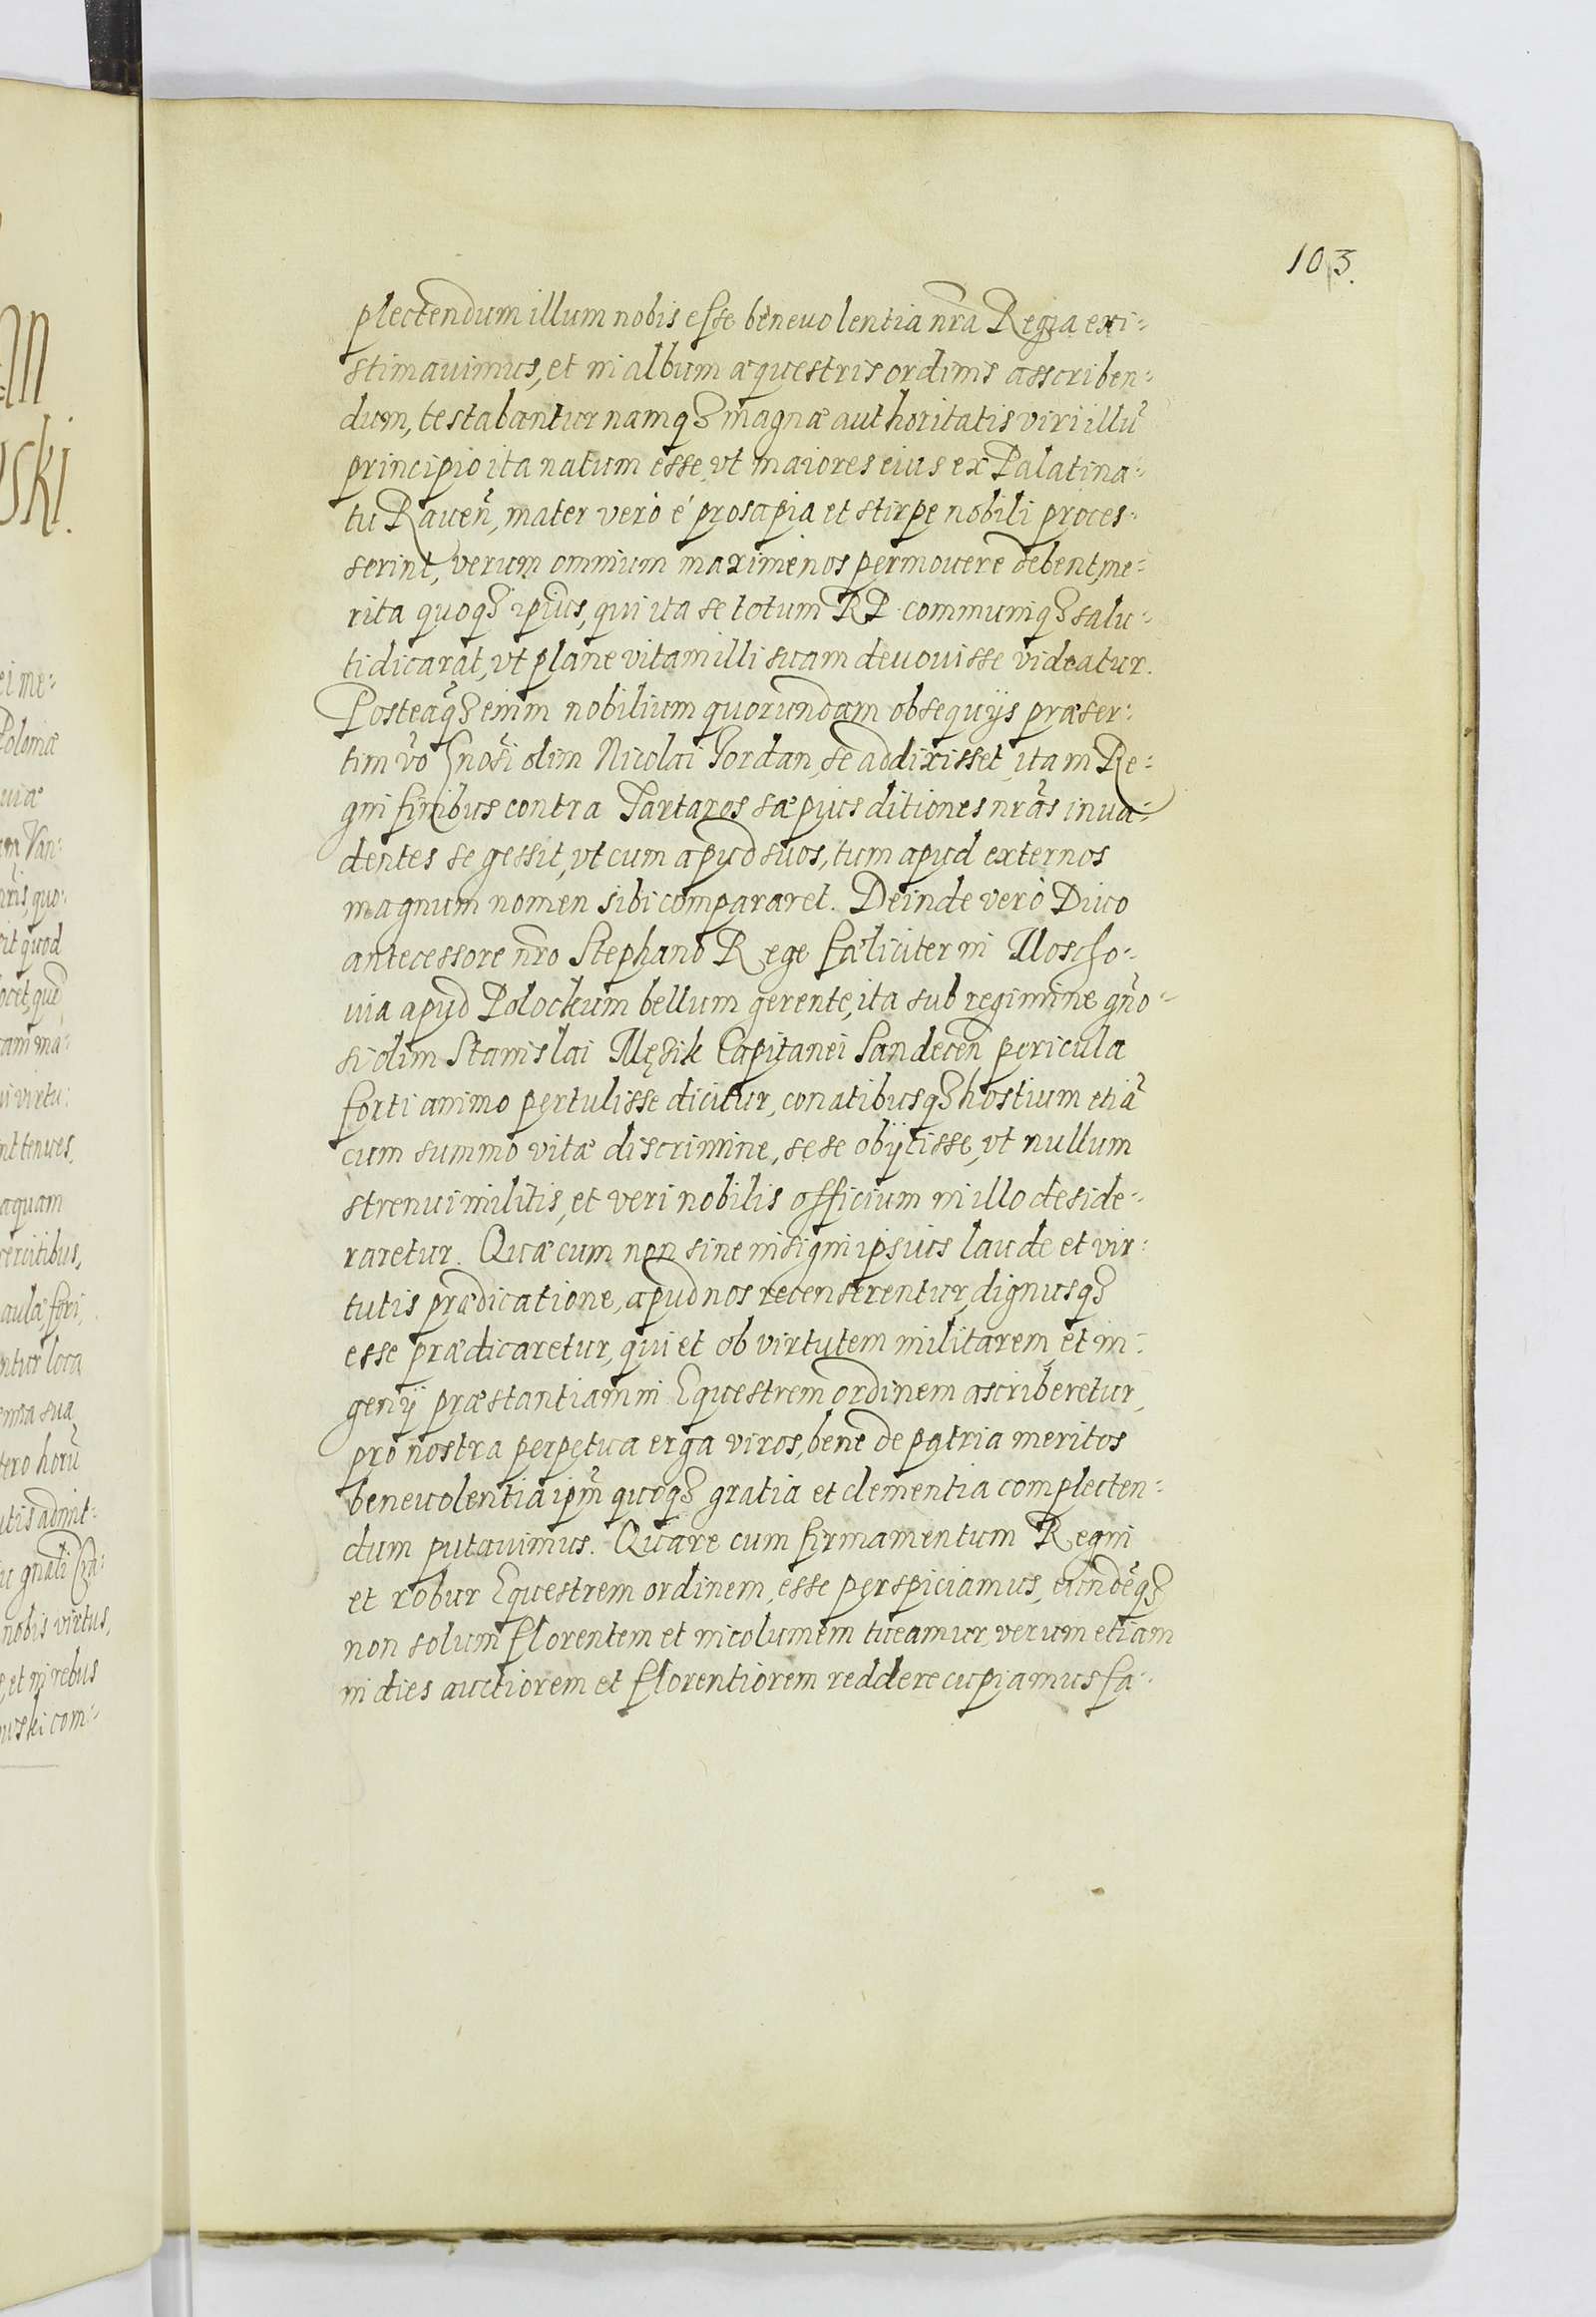 103.
plectendum illum nobis esse beneuolentia nr̃a Regia exi⸗
stimauimus, et in album æquestris ordinis asscriben⸗
dum, testabantur namq₃ magnæ authoritatis viri illũ
principio ita natum esse, vt maiores eius ex Palatina⸗
tu Raueñ, mater verò é prosapia et stirpe nobili proces⸗
serint, verum omnium maximè nos permouere debent me⸗
rita quoq₃ ip̃ius, qui ita se totum RP. communiq₃ salu⸗
ti dicarat, vt plane vitam illi suam deuouisse videatur.
Posteãq₃ enim nobilium quorundam obsequijs præser⸗
tim ṽo Gnosĩ olim Nicolai Jordan, se addixisset, ita in Re⸗
gni finibus contra Tartaros sæpius ditiones nr̃as inua⸗
dentes se gessit, vt cum apud suos, tum apud externos
magnum nomen sibi compararet. Deinde verò Diuo
antecessore nr̃o Stephano Rege fæliciter in Moscho⸗
uia apud Polockum bellum gerente, ita sub regimine gño⸗
si olim Stanislai Męsik Capitanei Sandeceñ pericula
forti animo pertulisse dicitur, conatibusq₃ hostium etiã
cum summo vitæ discrimine, sese obijcisse, vt nullum
strenui militis, et veri nobilis officium in illo deside⸗
raretur. Quæ cum non sine insigni ipsius laude et vir⸗
tutis prædicatione, apud nos recenserentur, dignusq₃
esse prædicaretur, qui et ob virtutem militarem, et in⸗
genij præstantiam in Equestrem ordinem ascriberetur,
pro nostra perpetua erga viros, bene de patria meritos
beneuolentia ip̃m quoq₃ gratia et clementia complecten⸗
dum putauimus. Quare cum firmamentum Regni
et robur Equestrem ordinem, esse perspiciamus, eundẽq₃
non solum florentem et incolumem tueamur, verum etiam
in dies auctiorem et florentiorem reddere cupiamus fa⸗